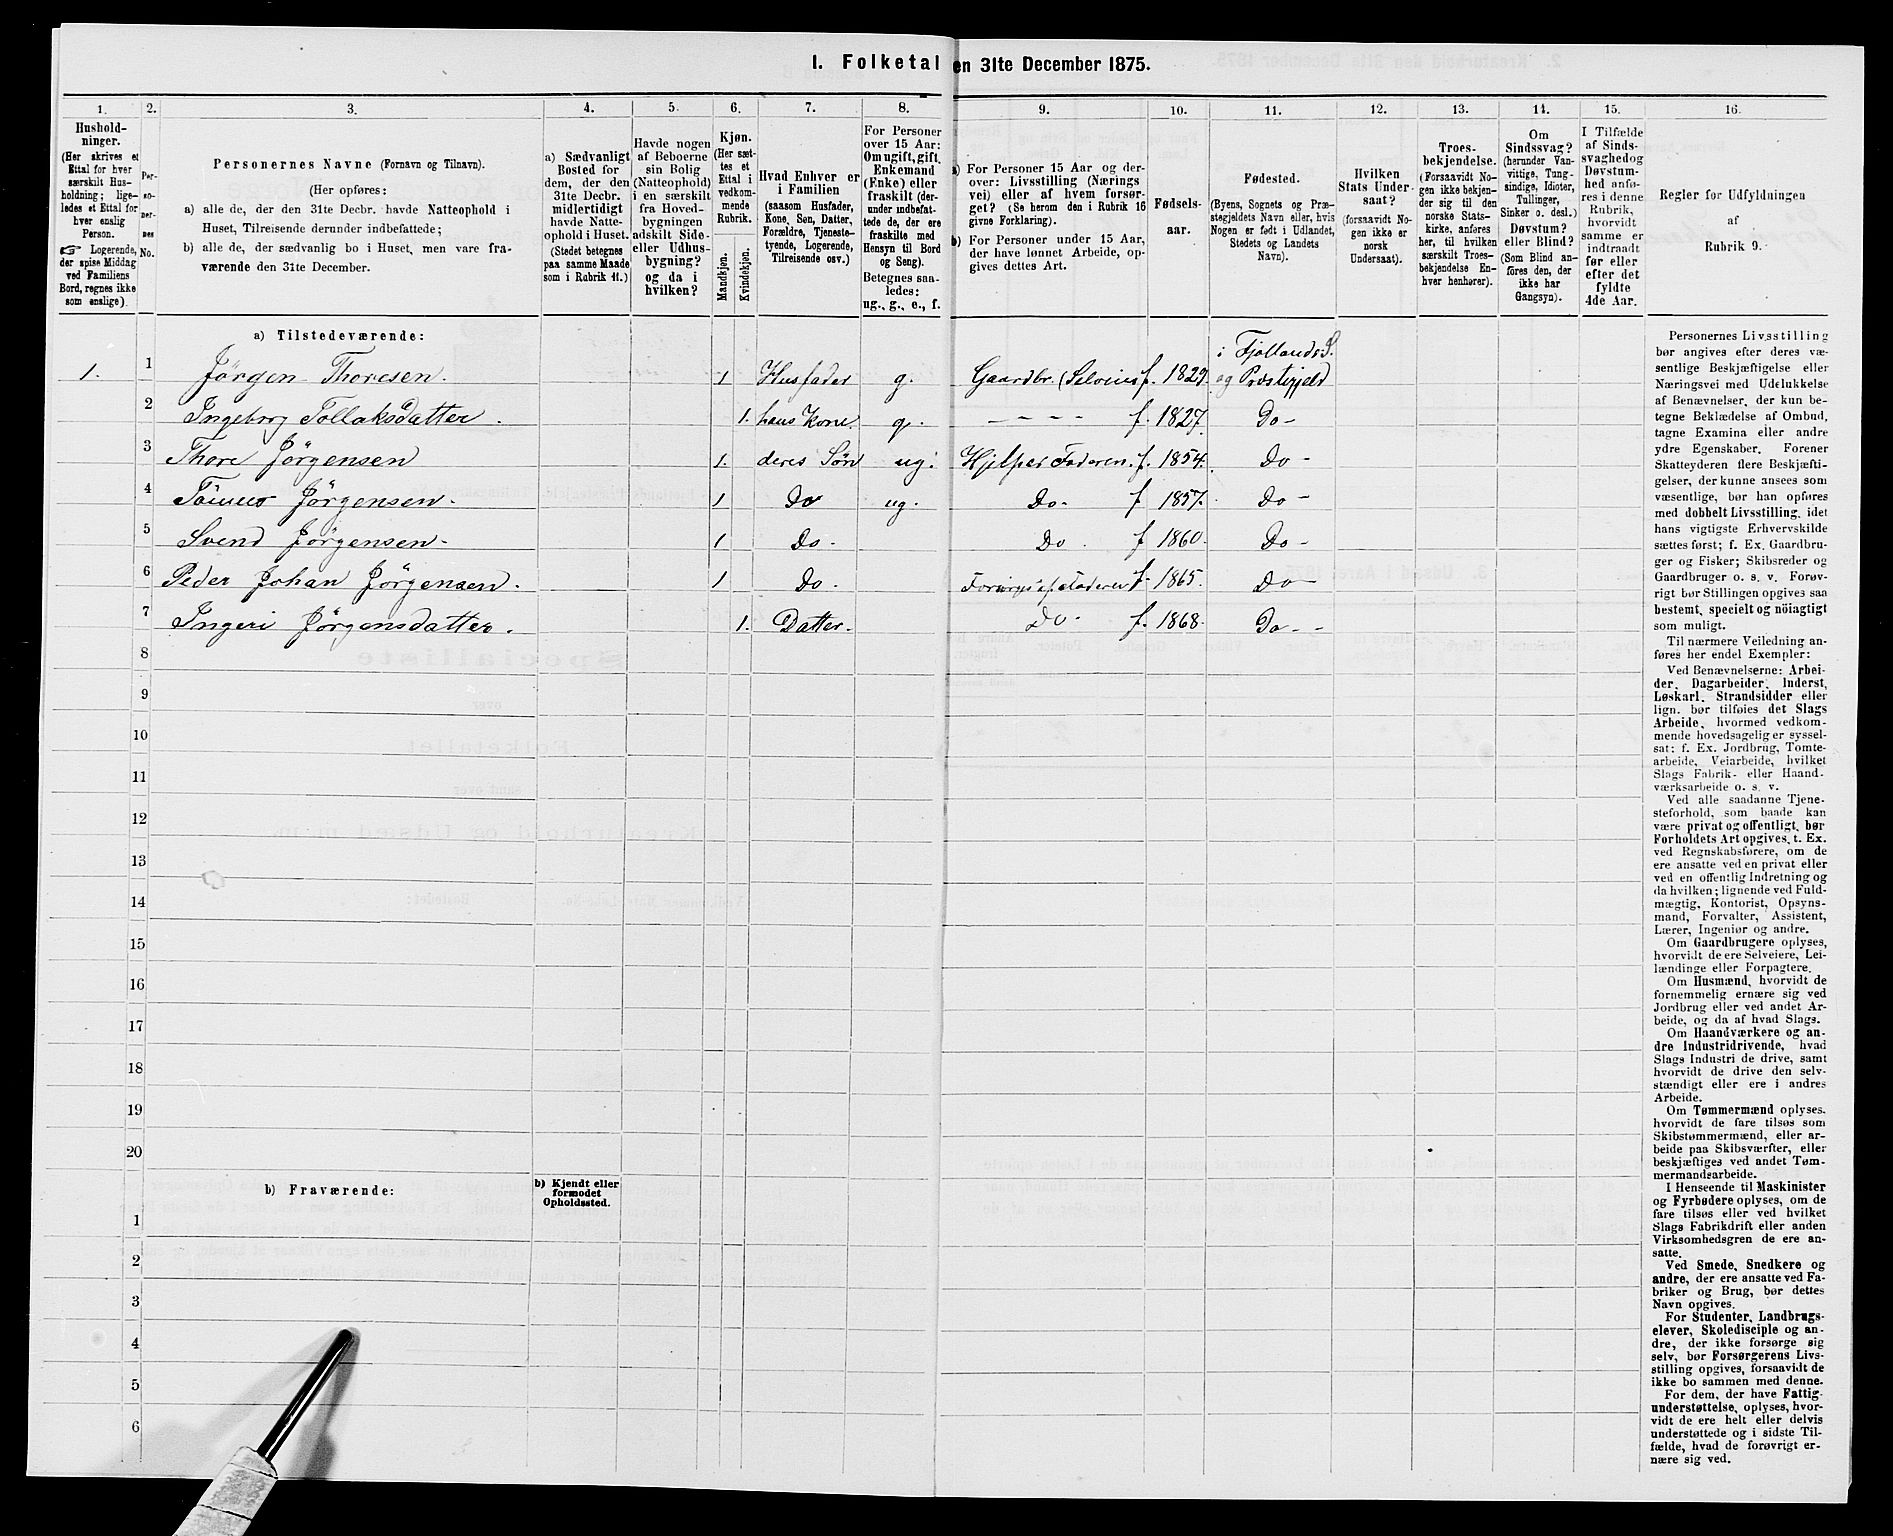 I. Folketal den 31te December 1875.
1.
Hushold-
ninger.
(Her skrives et
Ettal for hver
særskilt Hus-
holdning; lige-
ledes et Ettal for
hver enslig
Person.
☞ Logerende,
der spise Middag
ved Familiens
Bord, regnes ikke
som enslige).
2.
Per-
so-
ner-
nes
No.
3.
Personernes Navne (Fornavn og Tilnavn).
(Her opføres:
a) alle de, der den 31te Decbr. havde Natteophold i
Huset, Tilreisende derunder indbefattede;
b) alle de, der sædvanlig bo i Huset, men vare fra-
værende den 31te December.
4.
a) Sædvanligt
Bosted for
dem, der den
31te Decbr.
midlertidigt
havde Natte-
ophold i Huset.
(Stedet betegnes
paa samme Maade
som i Rubrik 11.)
5.
Havde nogen
af Beboerne
sin Bolig
(Natteophold)
i en særskilt
fra Hoved-
bygningen
adskilt Side-
eller Udhus-
bygning?
og da i
hvilken?
6.
Kjøn.
(Her sæt-
tes et
Ettal i
vedkom-
mende
Rubrik.
Mandkjøn.
Kvindekjøn.
7.
Hvad Enhver er
i Familien
(saasom Husfader,
Kone, Søn, Datter,
Forældre, Tjeneste-
tyende, Logerende,
Tilreisende osv.)
8.
For Personer
over 15 Aar:
Om ugift, gift,
Enkemand
(Enke) eller
fraskilt (der-
under indbefat-
tede de, der ere
fraskilte med
Hensyn til Bord
og Seng).
Betegnes saa-
ledes:
ug., g., e., f.
9.
a) For Personer 15 Aar og der-
over: Livsstilling (Nærings
vei) eller af hvem forsør-
get? (Se herom den i Rubrik 16
givne Forklaring).
b) For Personer under 15 Aar,
der have lønnet Arbeide, op-
gives dettes Art.
10.
Fødsels-
aar.
11.
Fødested.
(Byens, Sognets og Præ-
stegjeldets Navn eller, hvis
Nogen er født i Udlandet,
Stedets og Landets
Navn).
12.
Hvilken
Stats Under-
saat?
(forsaavidt No-
gen ikke er
norsk
Undersaat).
13.
Troes-
bekjendelse.
(Forsaavidt No-
gen ikke bekjen-
der sig til den
norske Stats-
kirke, anføres
her, til hvilken
særskilt Troes-
bekjendelse En-
hver henhører).
14.
Om
Sindssvag?
(herunder Van-
vittige, Tung-
sindige, Idioter,
Tullinger,
Sinker o. desl.)
Døvstum?
eller Blind?
(Som Blind an-
føres den, der
ikke har
Gangsyn).
15.
I Tilfælde
af Sinds-
svaghed og
Døvstum-
hed anfø-
res i denne
Rubrik,
hvorvidt
samme er
indtraadt
før eller
efter det
fyldte
4de Aar.
16.
Regler for Udfyldningen
af
Rubrik 9.
a) Tilstedeværende:
1. 1 Jörgen Thoresen. 1 Husfader g. Gaardbr. (Selveier f. 1829. i Fjotlands S. og Præstegjeld
2 Ingeborg Tollaksdatter. 1. hans Kone. g. - - - - f. 1827. Do -
3 Thore Jörgensen 1. deres Sön ug. Hjelper Faderen. f. 1854. Do -
4 Tönnes Jörgensen. 1 Do ug. Do. f. 1857. Do -
5 Svend Jörgensen. 1 Do. Do. f 1860. Do -
6 Peder Johan Jörgensen. 1 Do. Forsörges af Faderen f. 1865. Do -
7 Ingeri Jörgensdatter. 1. Datter. Do. f. 1868. Do - -
8
9
10
11
12
13
14
15
16
17
18
19
20
b) Fraværende:
b) Kjendt eller
formodet
Opholdssted.
1
2
3
4
5
6
Personernes Livsstilling
bør angives efter deres væ-
sentlige Beskjæftigelse eller
Næringsvei med Udelukkelse
af Benævnelser, der kun be-
tegne Beklædelse af Ombud,
tagne Examina eller andre
ydre Egenskaber. Forener
Skatteyderen flere Beskjæfti-
gelser, der kunne ansees som
væsentlige, bør han opføres
med dobbelt Livsstilling, idet
hans vigtigste Erhvervskilde
sættes først; f. Ex. Gaardbru-
ger og Fisker; Skibsreder og
Gaardbruger o. s. v. Forøv-
rigt bør Stillingen opgives saa
bestemt, specielt og nöiagtigt
som muligt.
Til nærmere Veiledning an-
føres her endel Exempler:
Ved Benævnelserne: Arbei-
der, Dagarbeider, Inderst,
Løskarl, Strandsidder eller
lign. bør tilføies det Slags
Arbeide, hvormed vedkom-
mende hovedsagelig er syssel-
sat; f. Ex. Jordbrug, Tomte-
arbeide, Veiarbeide, hvilket
Slags Fabrik- eller Haand-
værksarbeide o. s. v.
Ved alle saadanne Tjene-
steforhold, som baade kan
være privat og offentligt, bør
Forholdets Art opgives, t. Ex.
ved Regnskabsførere, om de
ere ansatte ved en privat eller
ved en offentlig Indretning og
da hvilken; lignende ved Fuld-
mægtig, Kontorist, Opsyns-
mand, Forvalter, Assistent,
Lærer, Ingeniør og andre.
Om Gaardbrugere oplyses,
hvorvidt de ere Selveiere, Lei-
lændinge eller Forpagtere.
Om Husmænd, hvorvidt de
fornemmelig ernære sig ved
Jordbrug eller ved andet Ar-
beide, og da af hvad Slags.
Om Haandværkere og an-
dre Industridrivende, hvad
Slags Industri de drive, samt
hvorvidt de drive den selv-
stændigt eller ere i andres
Arbeide.
Om Tømmermænd oplyses.
hvorvidt de fare tilsøs som
Skibstømmermænd, eller ar-
beide paa Skibsværfter, eller
beskjæftiges ved andet Tøm-
mermandsarbeide.
I Henseende til Maskinister
og Fyrbødere oplyses, om de
fare tilsøs eller ved hvilket
Slags Fabrikdrift eller anden
Virksomhedsgren de ere an-
satte.
Ved Smede, Snedkere og
andre, der ere ansatte ved Fa-
briker og Brug, bør dettes
Navn opgives.
For Studenter, Landbrugs-
elever, Skoledisciple og an-
dre, der ikke forsørge sig
selv, bør Forsørgerens Livs-
stilling opgives, forsaavidt de
ikke bo sammen med denne.
For dem, der have Fattig-
understøttelse, oplyses, hvor-
vidt de ere helt eller delvis
understøttede og i sidste Til-
fælde, hvad de forøvrigt er-
nære sig ved.